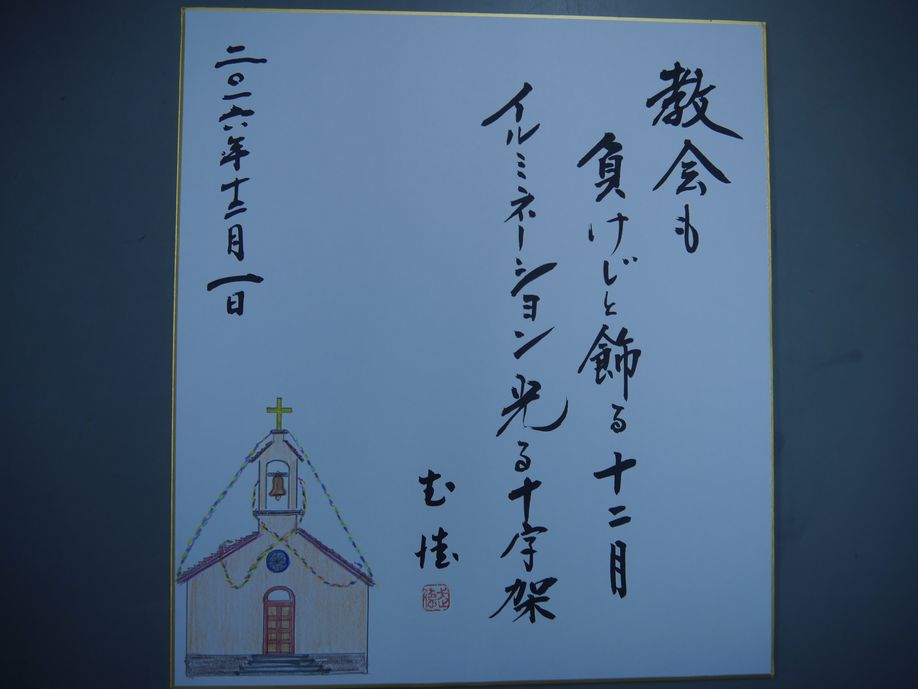 教会も
負けじと飾る十二月
イルミネーション光る十字架
二〇一六年十二月一日